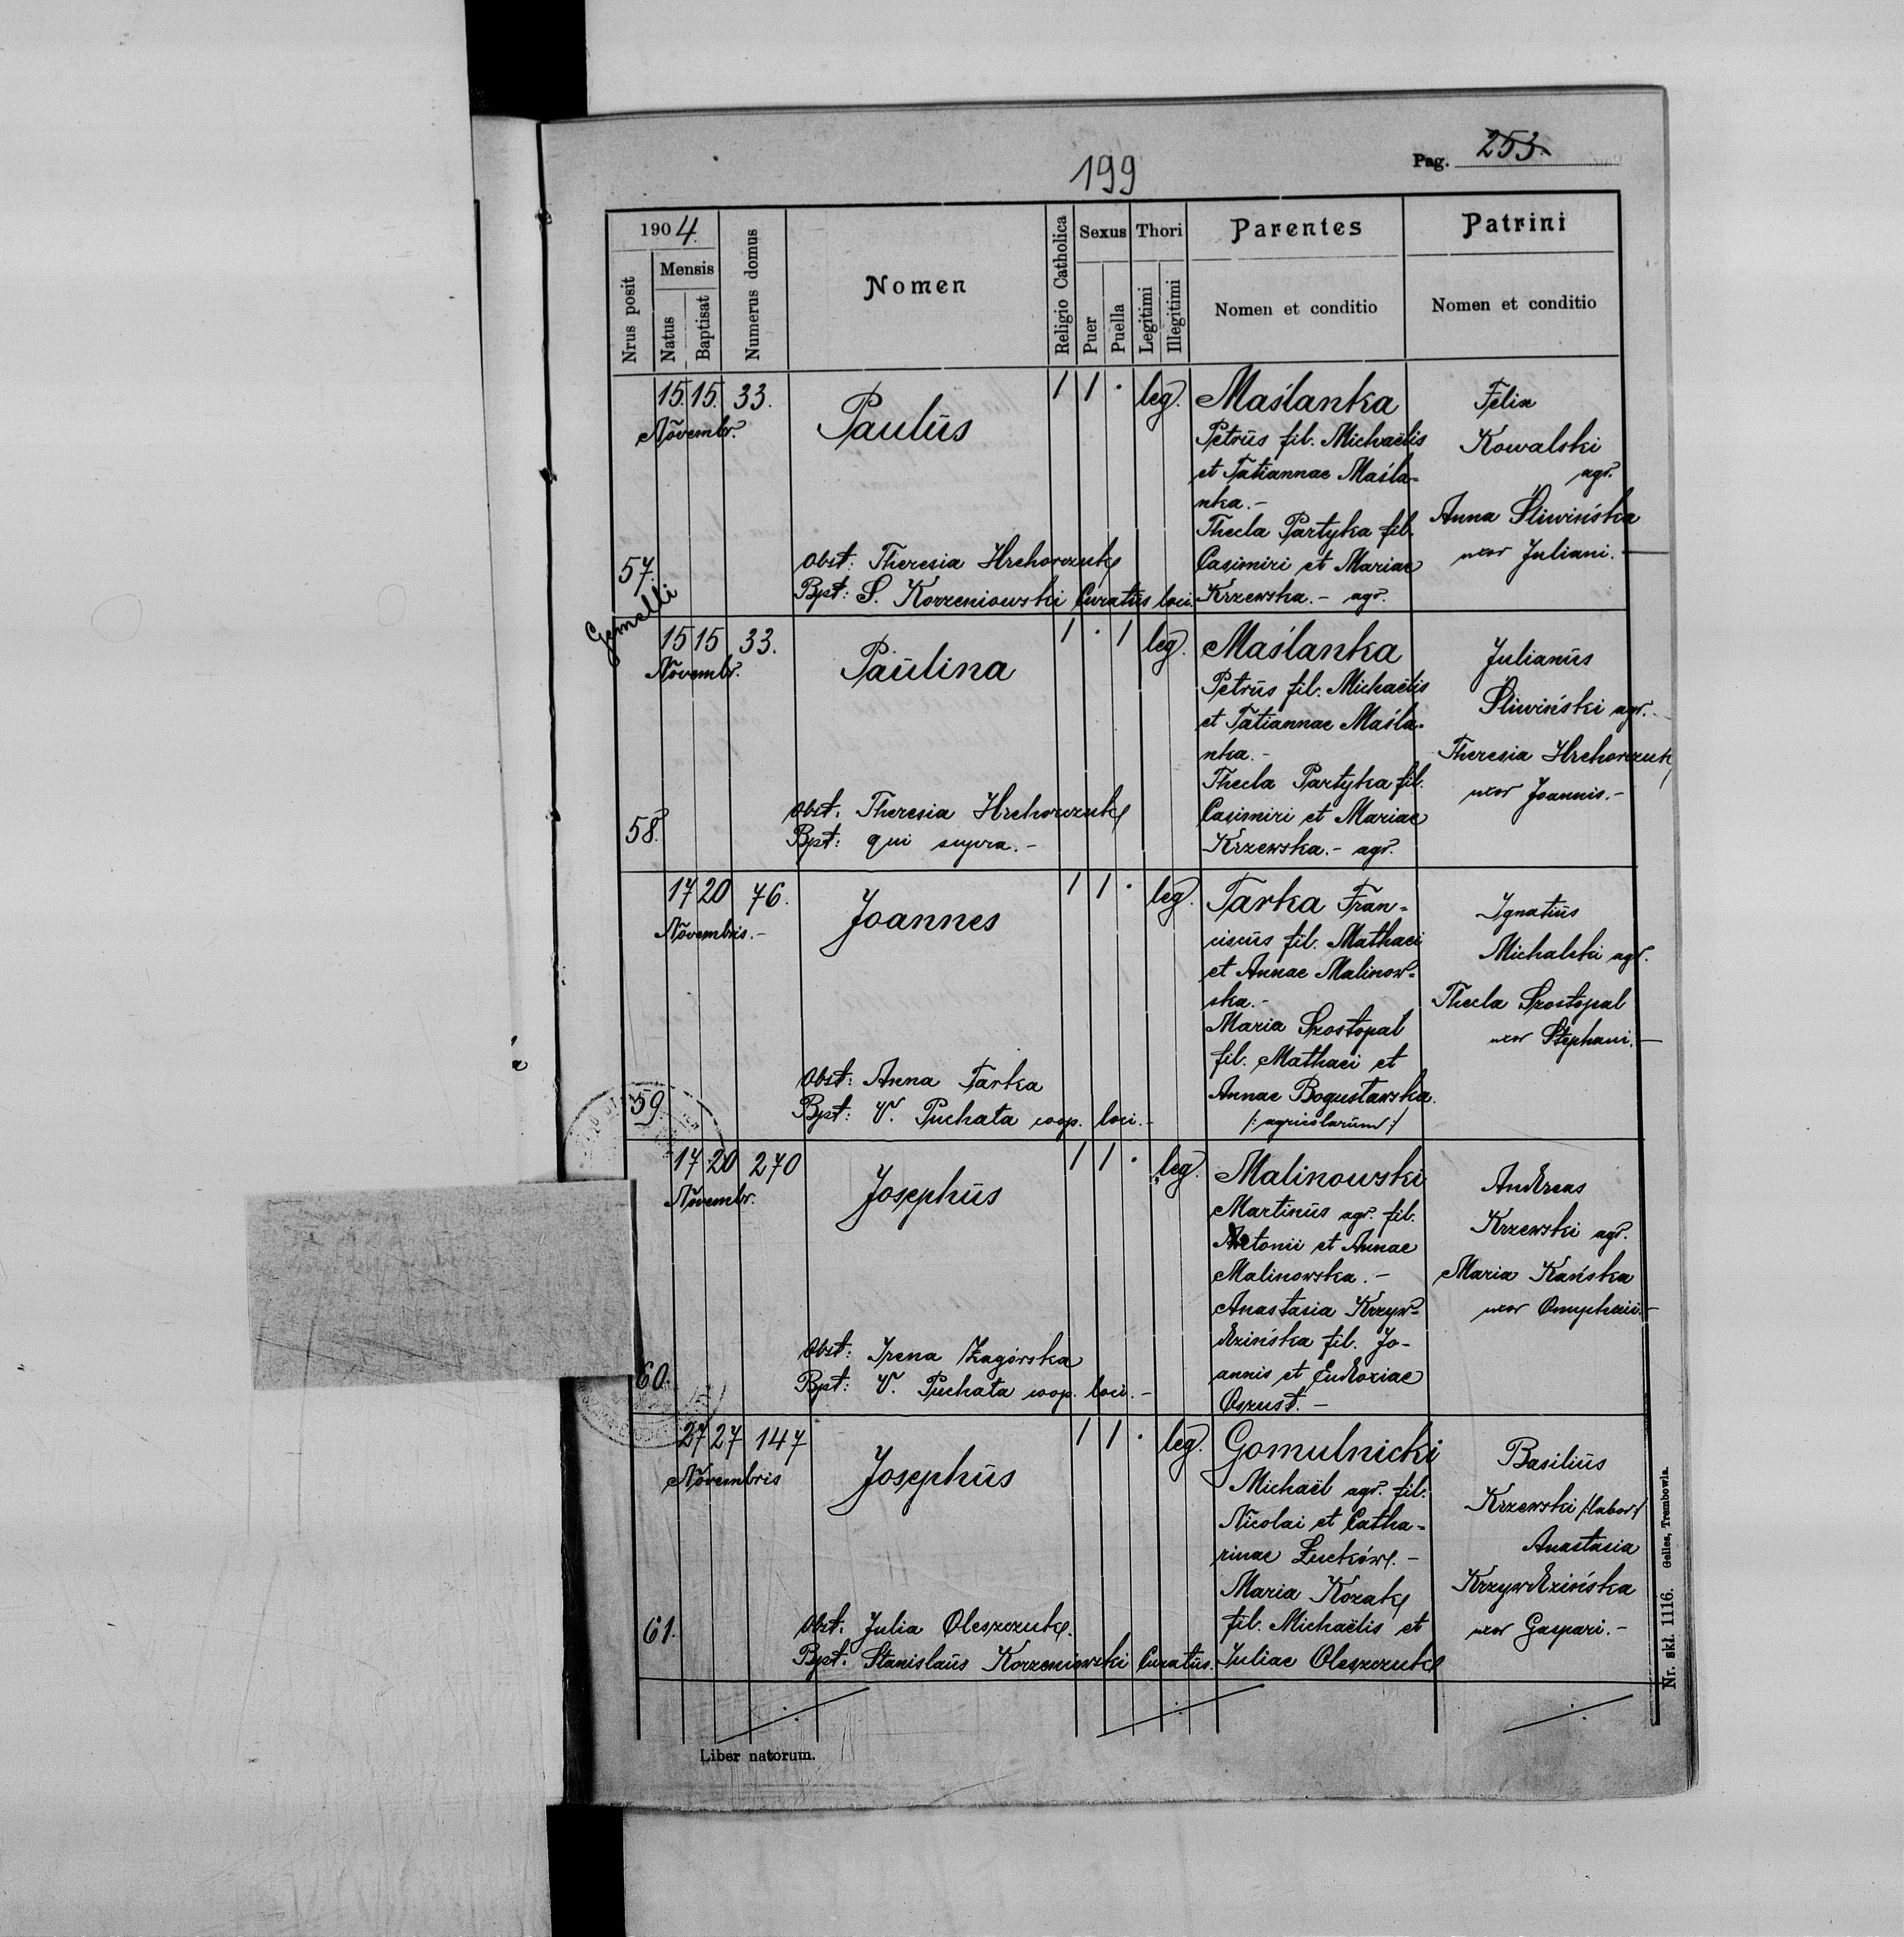 199
Pag. 253.
1904.
Nrus posit
Mensis
Natus
Baptisat
Numerus domus
Nomen
Religio Catholica
Sexus
Puer
Puella
Thori
Legitimi
Illegitimi
Parentes
Nomen et conditio
Patrini
Nomen et conditio
57.
15. 15. 33.
Novembr.
Paulus
Obst: Theresia Hrehorczuk
Bpt: S. Korzeniowski Curatus loci.
1 1 · leg.
Maślanka
Petrus fil. Michaëlis
et Tatiannae Maśla-
nka.-
Thecla Partyka fil.
Casimiri et Mariae
Krzewska.- agr.
Felix
Kowalski
agr.
Anna Śliwińska
uxor Juliani.-
Gemelli
58.
15 15 33.
Novembr.
Paulina
Obst. Theresia Hrehorczuk
Bpt: qui supra.-
1 · 1 leg.
Maślanka
Petrus fil. Michaëlis
et Tatiannae Maśla-
nka.-
Thecla Partyka fil.
Casimiri et Mariae
Krzewska.- agr.
Julianus
Śliwiński agr.-
Theresia Hrehorczuk
uxor Joannis.-
59
17 20 76.
Novembris.-
Joannes
Obst: Anna Tarka
Bpt: V. Puchata coop. loci.-
1 1 · leg.
Tarka Fran-
ciscus fil. Mathaei
et Annae Malinow-
ska.-
Maria Szostopal
fil. Mathaei et
Annae Bogusławska.
/: agricolarum :/
Ignatius
Michalski agr.
Thecla Szostopal
uxor Stephani.-
60.
17 20 270
Novembr.
Josephus
Obst: Irena Zagórska
Bpt: V. Puchata coop. loci.-
1 1 · leg.
Malinowski
Martinus agr. fil.
Antonii et Annae
Malinowska.-
Anastasia Krzyw-
dzińska fil. Jo-
annis et Eudoxiae
Oszust.-
Andreas
Krzewski agr.
Maria Kańska
uxor Onuphrii.-
61.
27 27 147
Novembris
Josephus
Obst. Julia Oleszczuk.
Bpt. Stanislaus Korzeniowski Curatus.
1 1 · leg.
Gomulnicki
Michaël agr. fil.
Nicolai et Catha-
rinae Łucków.-
Maria Kozak
fil. Michaëlis et
Juliae Oleszczuk
Basilius
Krzewski /:labor:/
Anastasia
Krzywdzińska
uxor Gaspari.-
Liber natorum.
Nr. skł. 1116. Gelles, Trembowla.